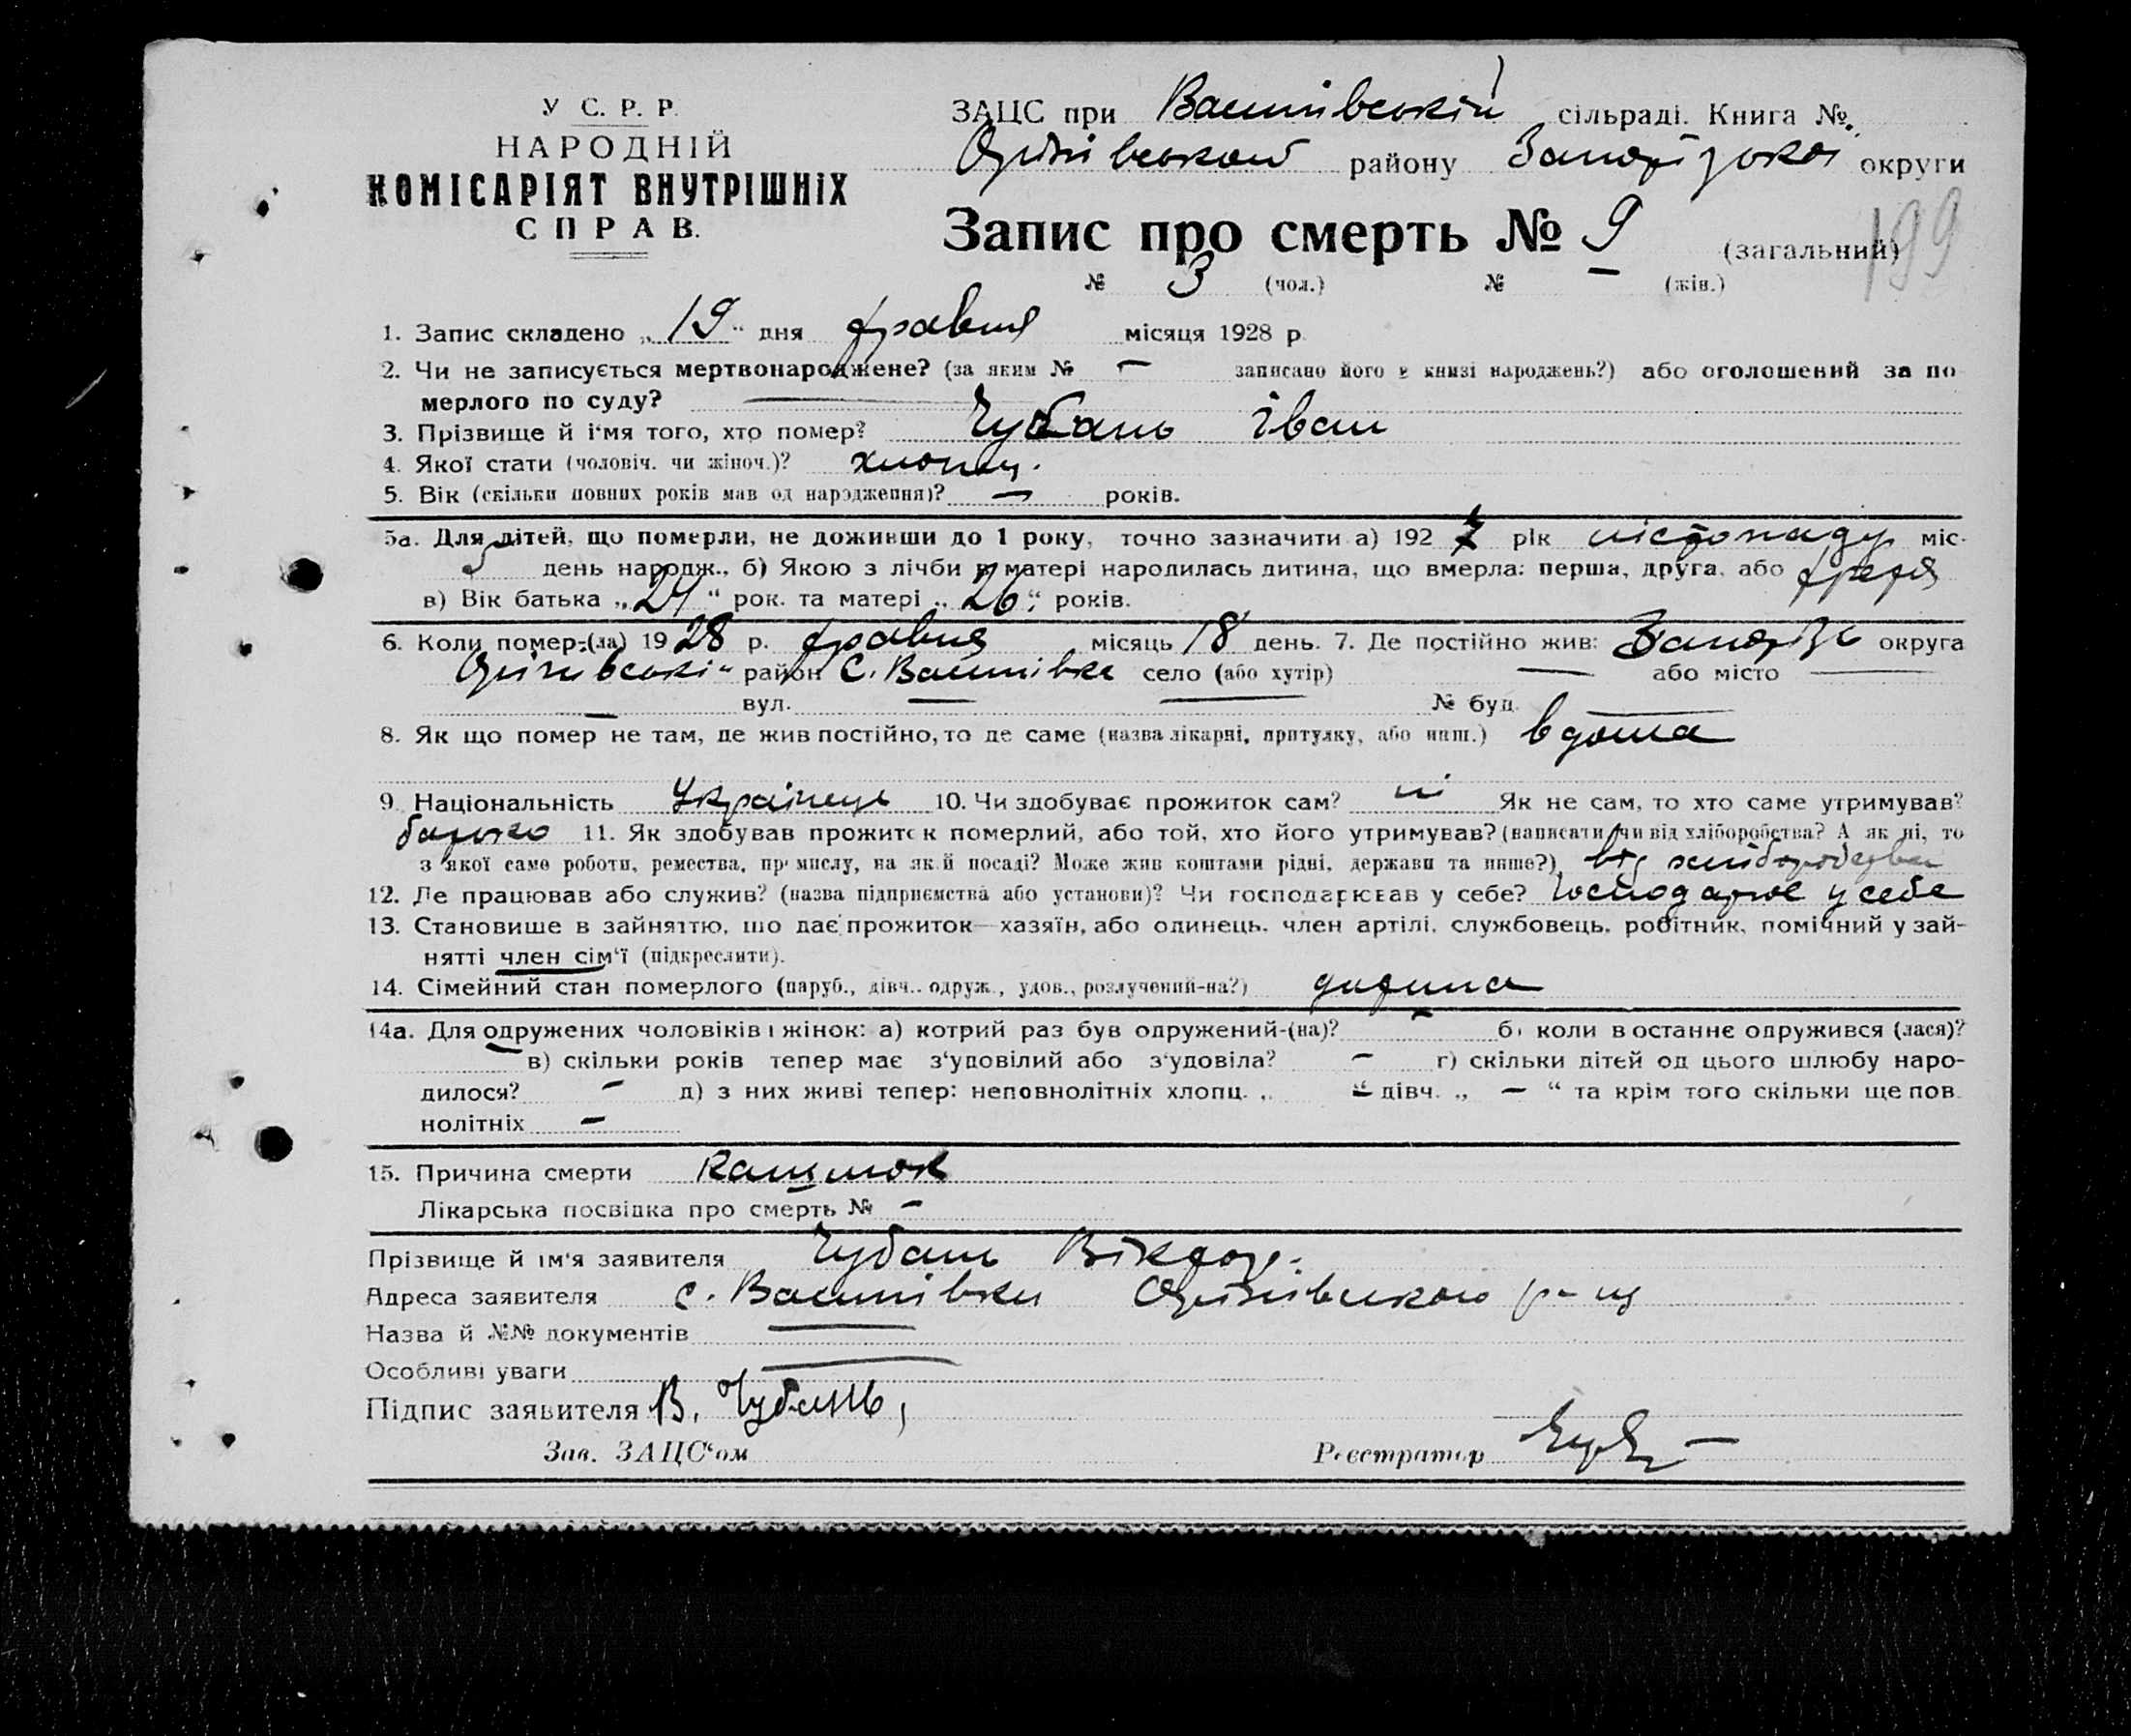 У С. Р. Р.
НАРОДНІЙ
КОМІСАРІЯТ ВНУТРІШНІХ
СПРАВ.
ЗАЦС при Васинівській сільраді. Книга №
Оріхівського району Запорізької округи
Запис про смерть № 9 (загальний)
199
№ 3 (чол.) № — (жін.)
1. Запис складено „19“ дня травня місяця 1928 р.
2. Чи не записується мертвонароджене? (за яким № — записано його в книзі народжень?) або оголошений за по
мерлого по суду? —
3. Прізвище й і'мя того, хто помер? Чубань Іван
4. Якої стати (чоловіч. чи жіноч.)? хлопець.
5. Вік (скільки повних років мав од народження)? — років.
5а. Для дітей, що померли, не доживши до 1 року, точно зазначити а) 1927 рік листопаду міс.
5 день народж., б) Якою з лічби в матері народилась дитина, що вмерла: перша, друга, або третя
в) Вік батька „27“ рок. та матері „26“ років.
6. Коли помер-(ла) 1928 р. травня місяць 18 день. 7. Де постійно жив: Запоріж округа
Оріхівський район С. Васинівка село (або хутір) — або місто —
— вул. — — № буд. —
8. Як що помер не там, де жив постійно, то де саме (назва лікарні, притулку, або инш.) вдома
9. Національність Українець 10. Чи здобуває прожиток сам? ні Як не сам, то хто саме утримував?
батько 11. Як здобував прожиток померлий, або той, хто його утримував? (написати чи від хліборобства? А як ні, то
з якої саме роботи, ремества, промислу, на якій посаді? Може жив коштами рідні, держави та инше?) від хліборобства
12. Де працював або служив? (назва підприємства або установи)? Чи господарював у себе? господарює у себе
13. Становище в зайняттю, що дає прожиток—хазяїн, або одинець, член артілі, службовець, робітник, помічний у зай-
нятті член сім'ї (підкреслити).
14. Сімейний стан померлого (паруб., дівч., одруж., удов., розлучений-на?) дитина
14а. Для одружених чоловіків і жінок: а) котрий раз був одружений-(на)? — б) коли востаннє одружився (лася)?
— в) скільки років тепер має з'удовілий або з'удовіла? — г) скільки дітей од цього шлюбу наро-
дилося? — д) з них живі тепер: неповнолітніх хлопц. „—“ дівч. „—“ та крім того скільки ще пов
нолітніх —
15. Причина смерти Кашлюк
Лікарська посвідка про смерть № —
Прізвище й ім'я заявителя Чубань Віктор.
Адреса заявителя с. Васинівки Оріхівського р-ну
Назва й №№ документів —
Особливі уваги —
Підпис заявителя В. Чубань,
Зав. ЗАЦС'ом Реєстратор